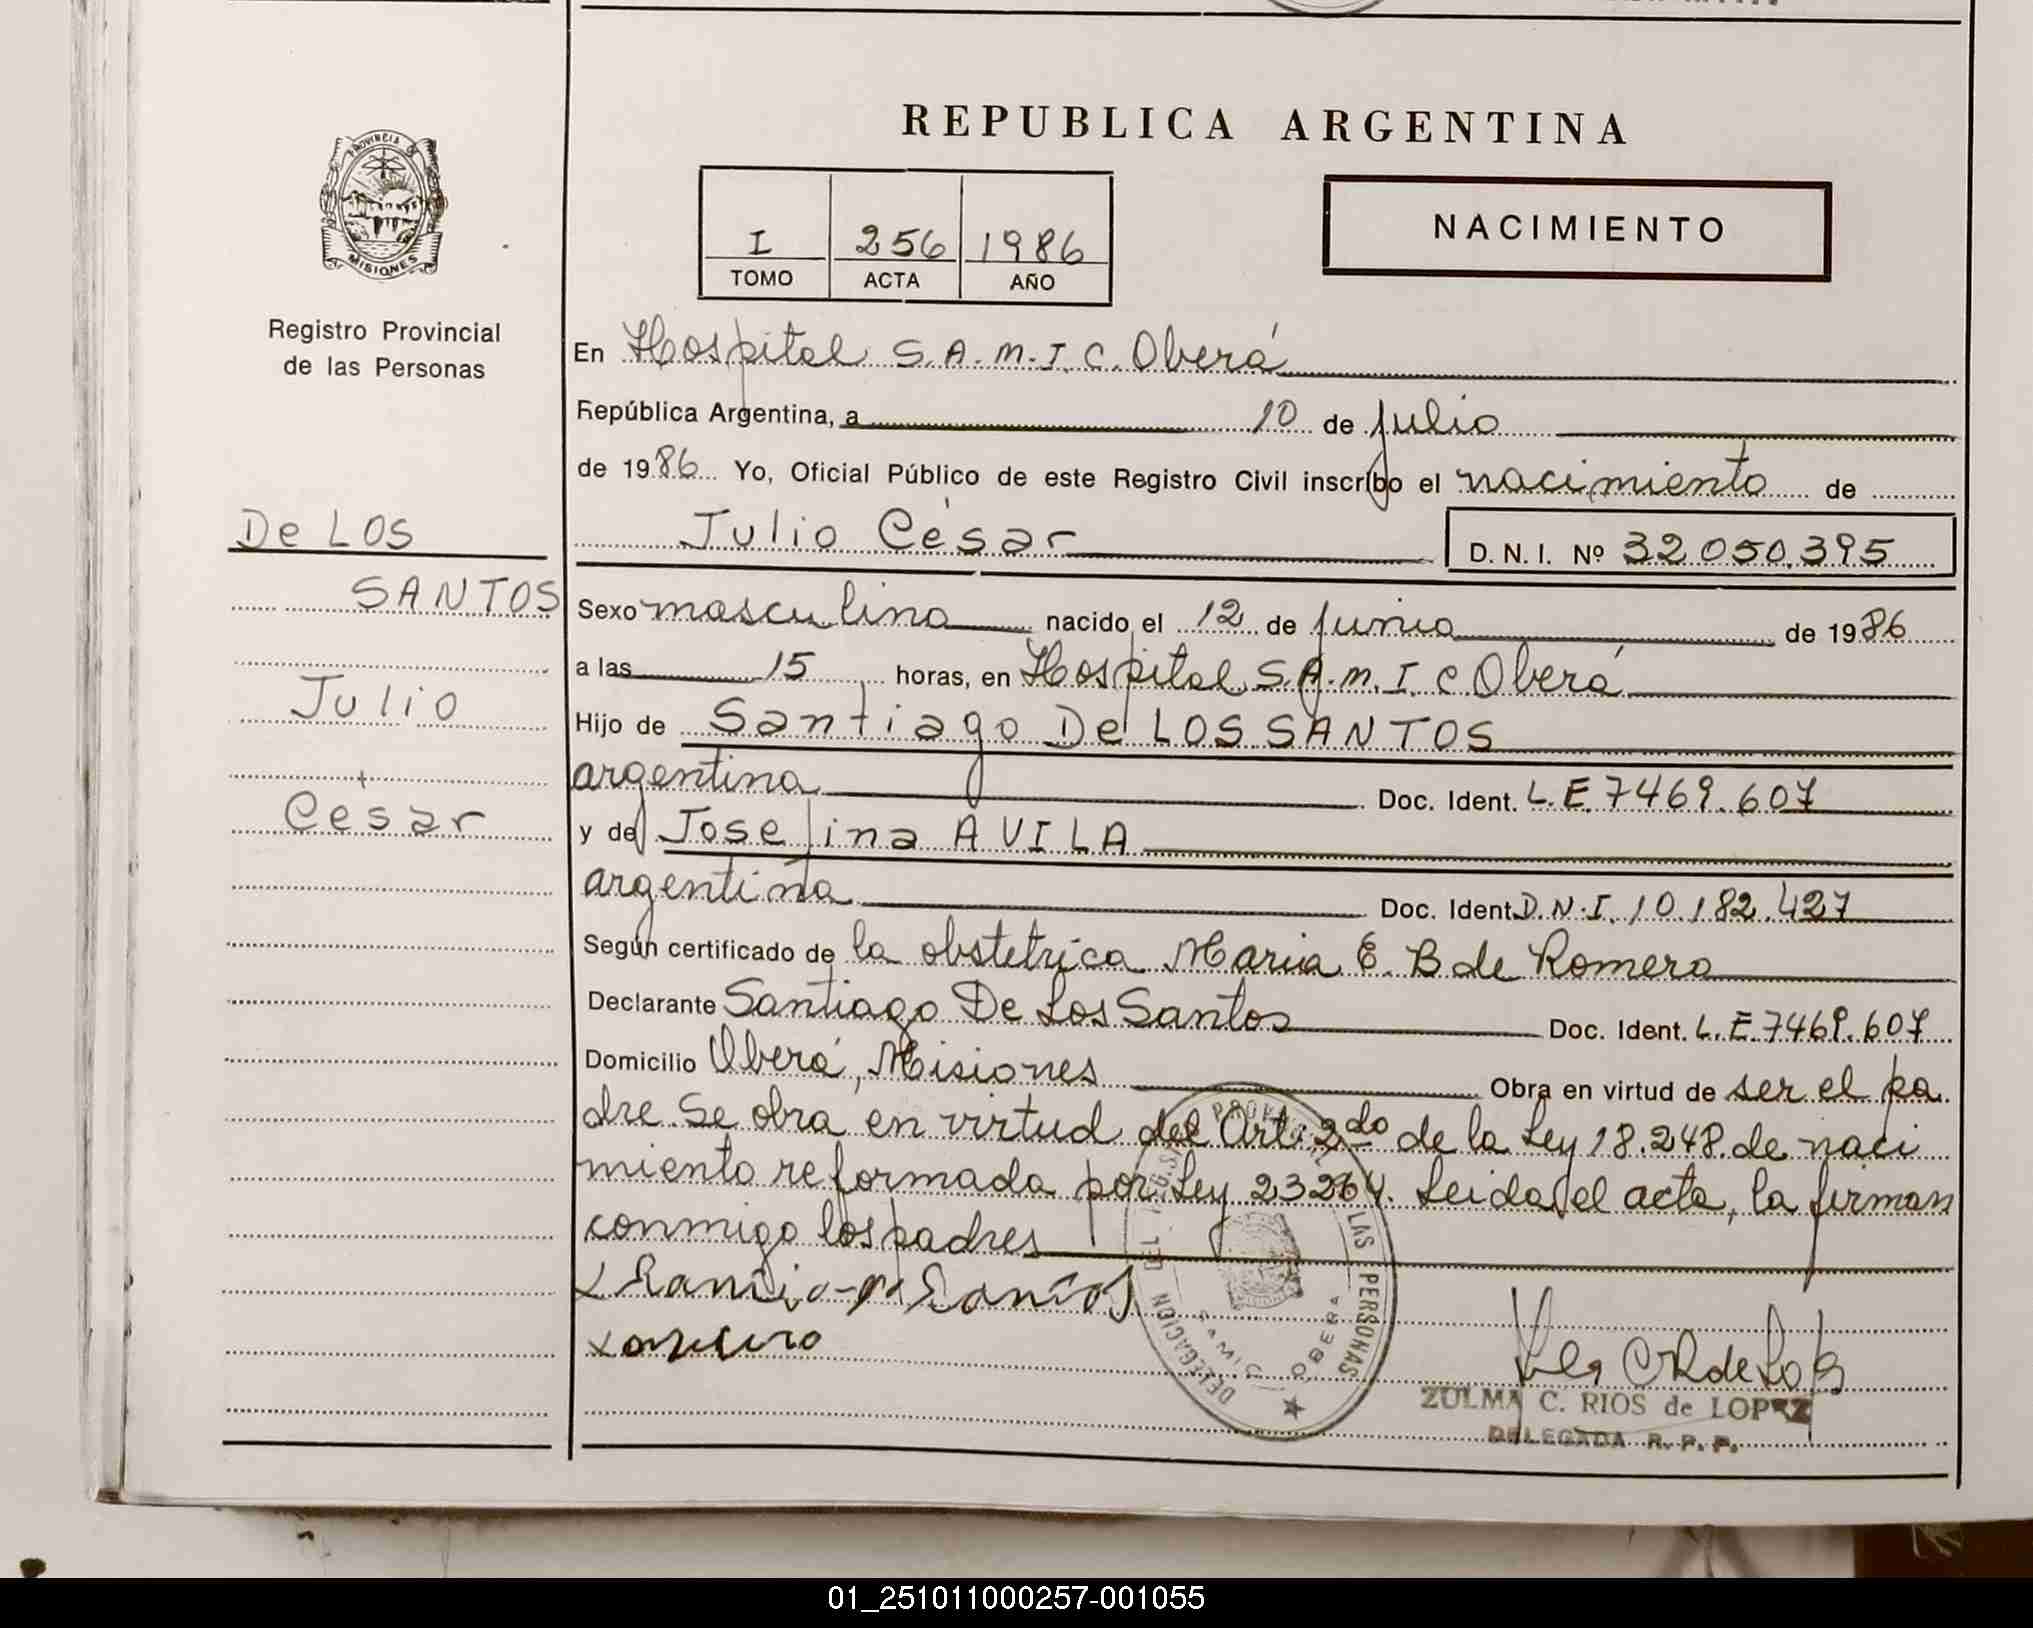 REPUBLICA ARGENTINA
PROVINCIA DE
MISIONES
Registro Provincial
de las Personas
I 256 1986
TOMO ACTA AÑO
NACIMIENTO
En Hospital S.A.M.I.C. Oberá
República Argentina, a 10 de julio
de 1986 Yo, Oficial Público de este Registro Civil inscribo el nacimiento de
Julio César D. N. I. Nº 32.050.395
De LOS
SANTOS
Julio
César
Sexo masculino nacido el 12 de junio de 1986
a las 15 horas, en Hospital S.A.M.I.C Oberá
Hijo de Santiago De LOS SANTOS
argentina Doc. Ident. L.E. 7469.607
y de Josefina AVILA
argentina Doc. Ident D.N.I. 10.182.427
Según certificado de la obstetrica Maria E. B de Romero
Declarante Santiago De Los Santos Doc. Ident. L.E. 7469.607
Domicilio Oberá, Misiones Obra en virtud de ser el pa
dre. Se obra en virtud del Art. 2do de la Ley 18.248. de naci
miento reformada por Ley 23264. Leida el acta, la firman
conmigo los padres
DELEGACION
LAS PERSONAS
SAMIC OBERA
ZULMA C. RIOS de LOPEZ
DELEGADA R. P. P.
01_251011000257-001055